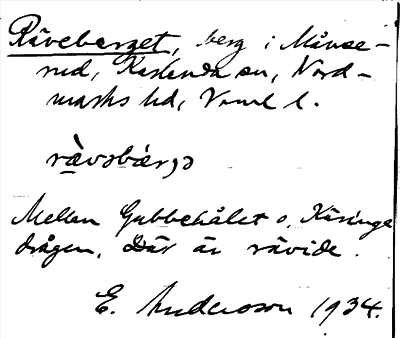 Räveberget, berg i Månse-
rud, Karlanda sn, Nord-
marks hd, Vrml l.
rävəbärjə
Mellan Gubbehålet o. Käringe
drågen. Där är rävide.
E. Anderson 1934.